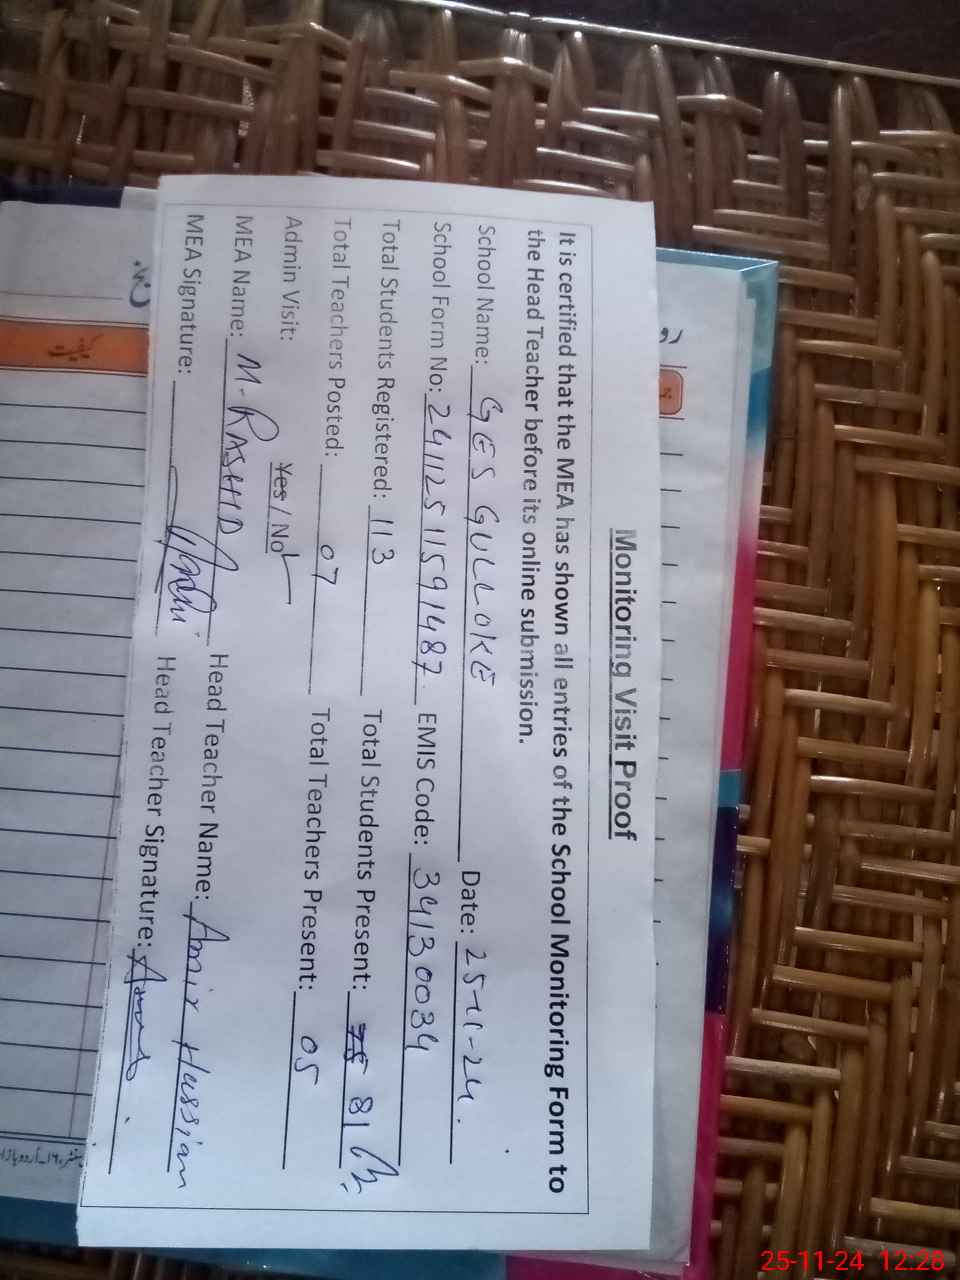 Monitoring Visit Proof
It is certified that the MEA has shown all entries of the School Monitoring Form to
the Head Teacher before its online submission.
School Name: GES GULLOKE Date: 25-11-24.
School Form No: 24112511591487. EMIS Code: 34130034
Total Students Registered: 113 Total Students Present: 75 81
Total Teachers Posted: 07 Total Teachers Present: 05
Admin Visit: Yes / No
MEA Name: M. RASHID Head Teacher Name: Amir Hussian
MEA Signature: Head Teacher Signature:
25-11-24 12:28